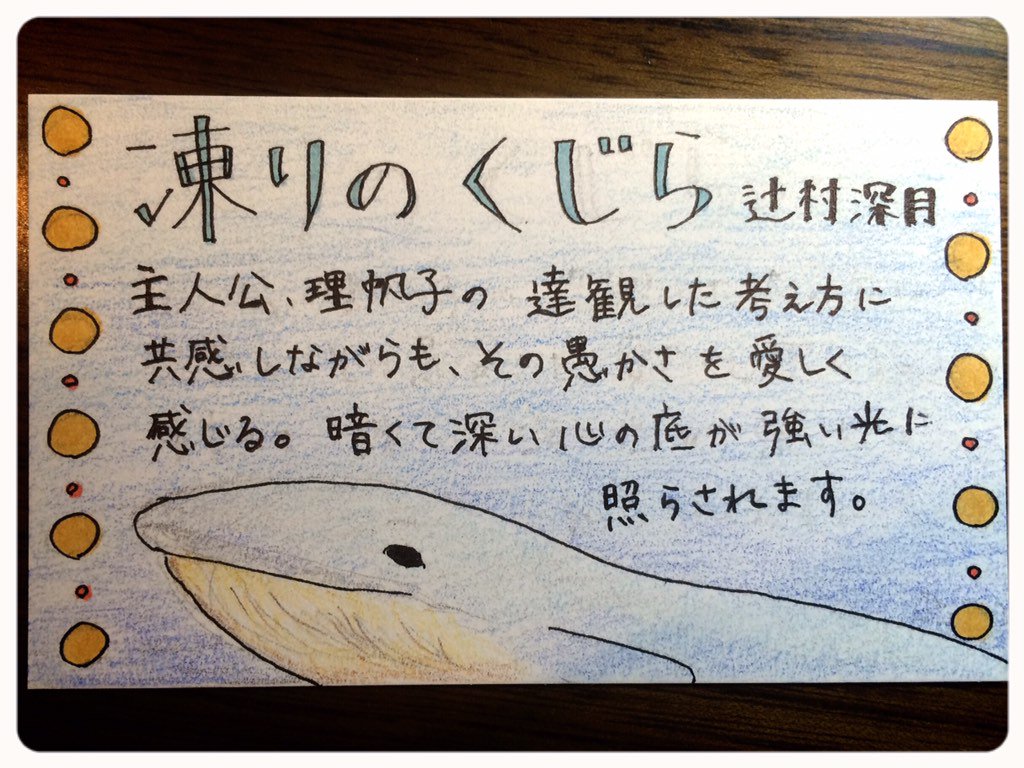 凍りのくじら 辻村深月
主人公、理帆子の 達観した考え方に
共感しながらも、その愚かさを愛しく
感じる。暗くて深い心の底が強い光に
照らされます。